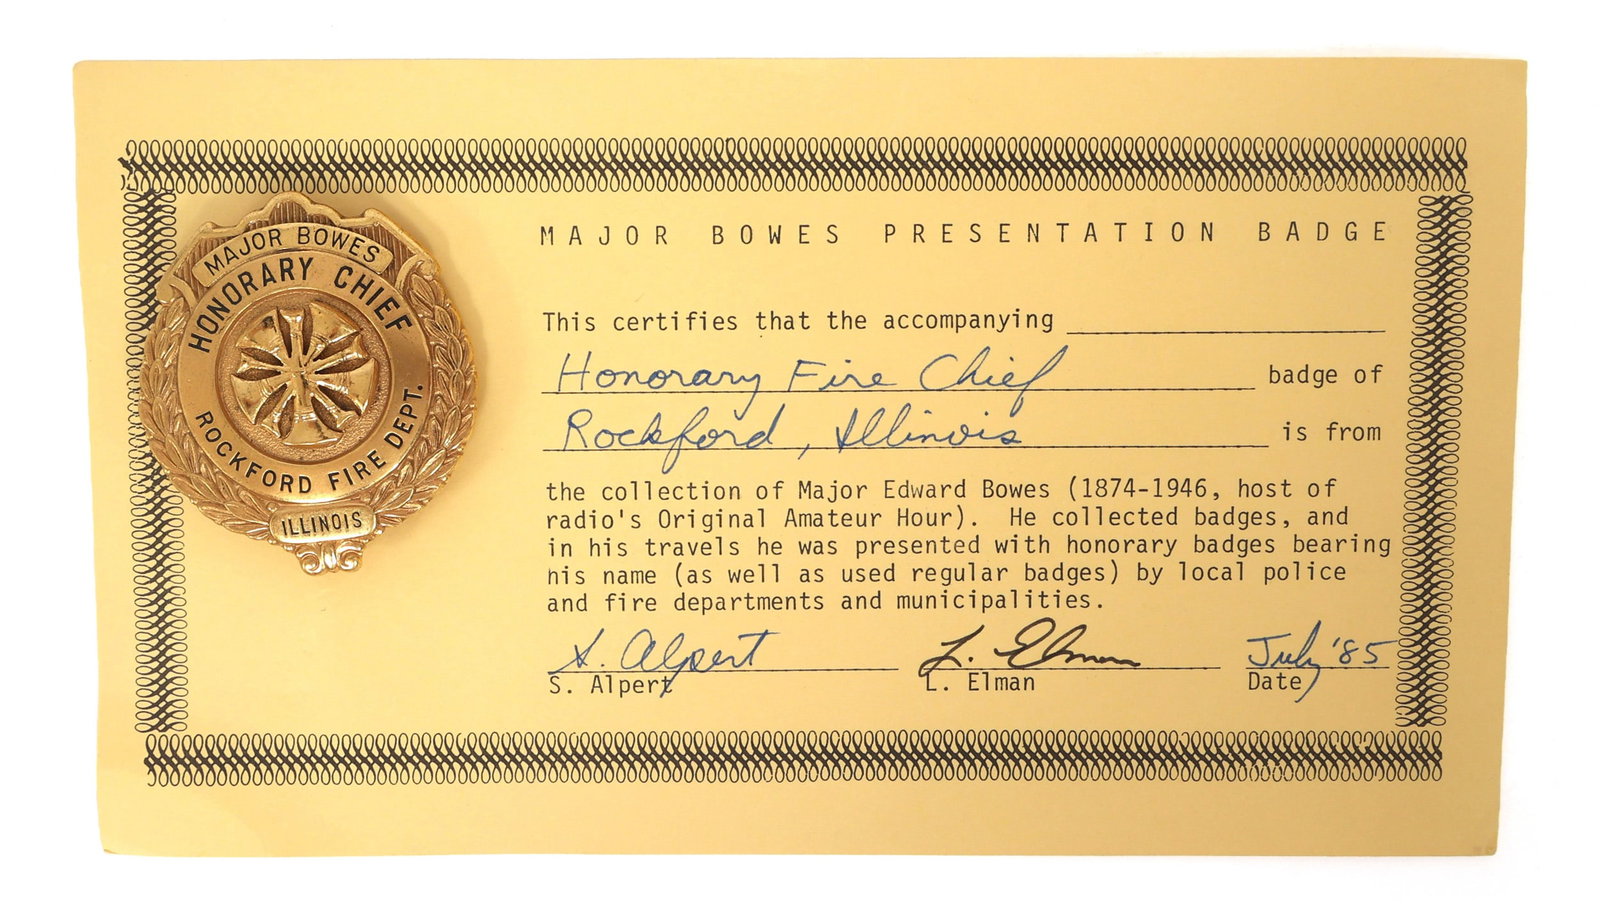 MAJOR BOWES
HONORARY CHIEF
ROCKFORD FIRE DEPT.
ILLINOIS
MAJOR BOWES PRESENTATION BADGE
This certifies that the accompanying
Honorary Fire Chief badge of
Rockford, Illinois is from
the collection of Major Edward Bowes (1874-1946, host of
radio's Original Amateur Hour). He collected badges, and
in his travels he was presented with honorary badges bearing
his name (as well as used regular badges) by local police
and fire departments and municipalities.
S. Alpert L. Elman July '85
S. Alpert L. Elman Date